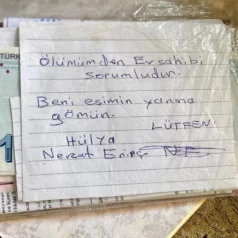 TÜRK
Ölümümden Ev sahibi
sorumludur.
Beni eşimin yanına
gömün.
LÜTFEN.
HÜLYA
Nevzat
1